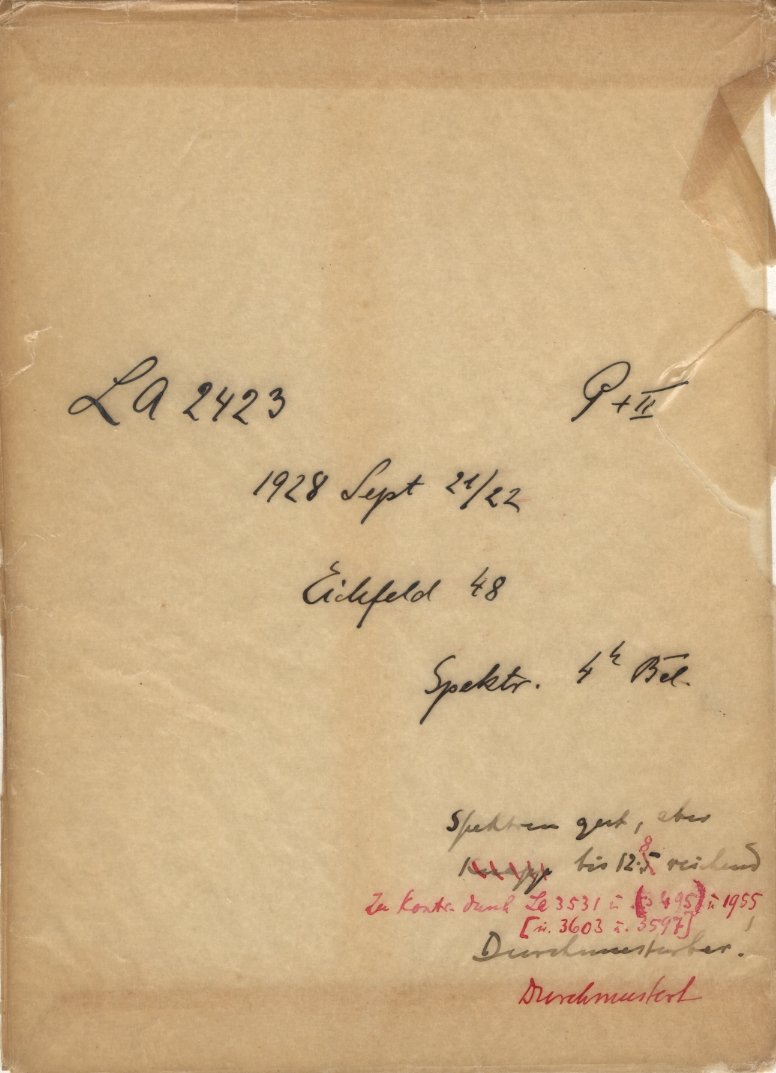 LA 2423 P + II
1928 Sept 21/22
Eichfeld 48
Spektr. 4h Bel.
Spektren gut, aber
knapp bis 12.5 8 reichend
Zu Kontr. durch La 3531 u. (3495) u 1955
[u. 3603 u. 3597]
Durchmusterbar.
Durchmustert